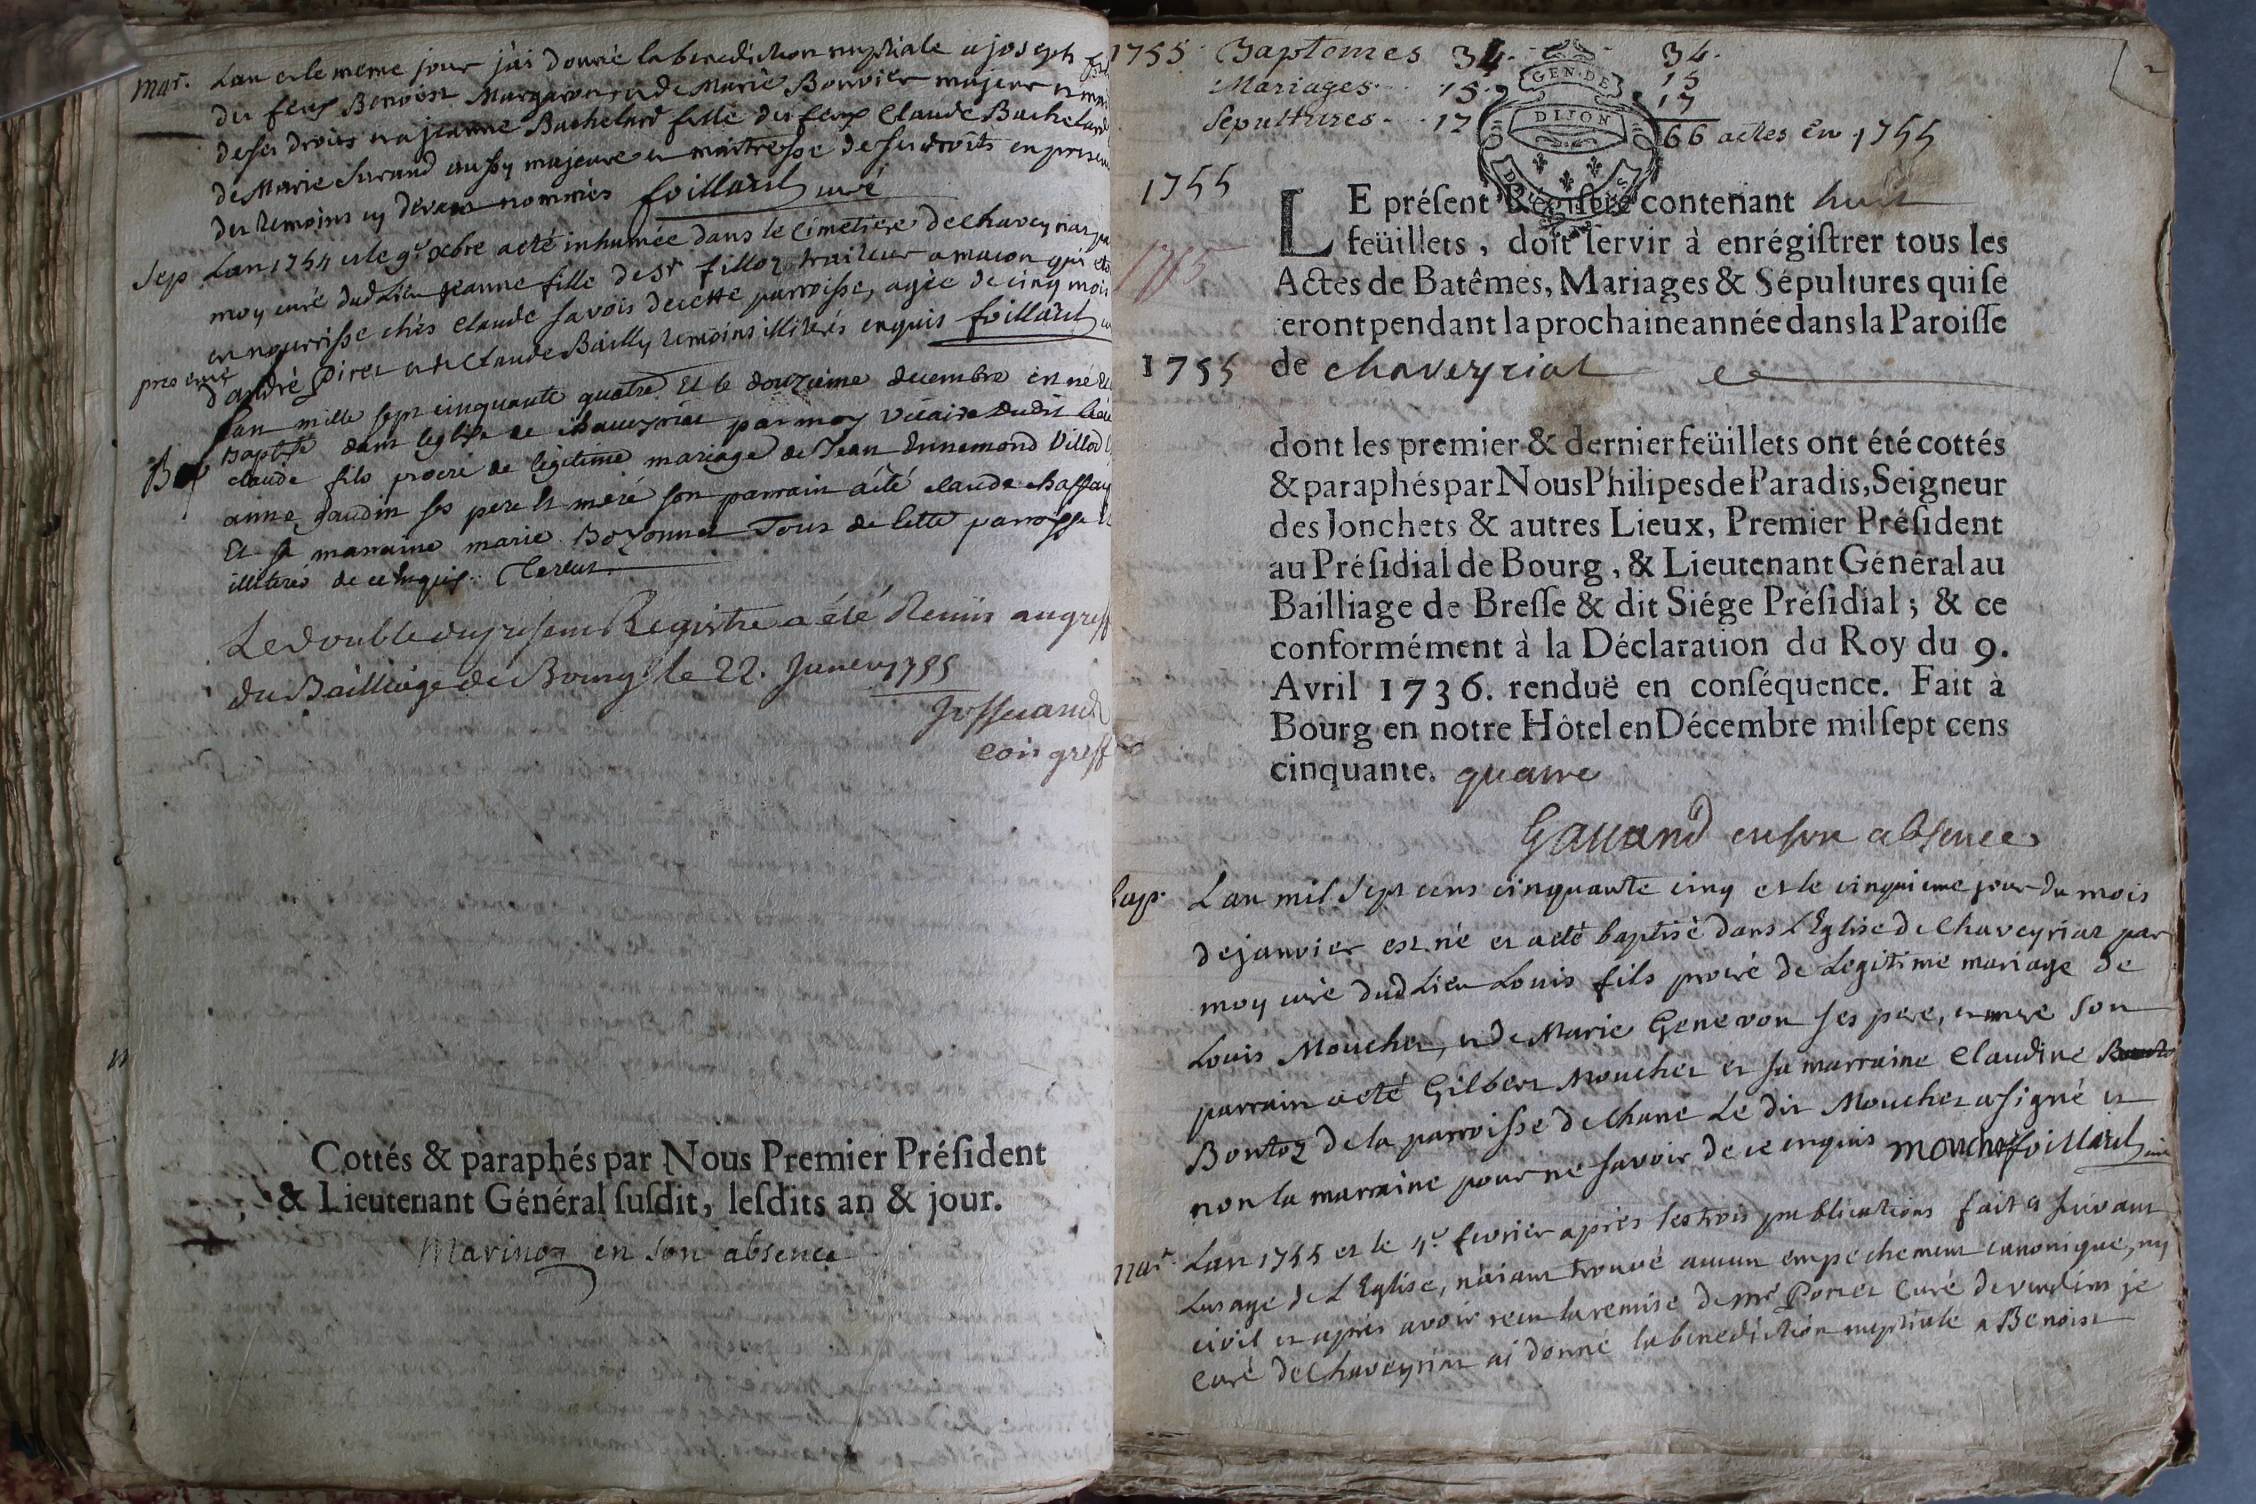 mar. Lan et le meme jour j'ai donné la benediction nuptiale a joseph fils
du feux Benoist Margaron et de Marie Bouvier majeur et
de ses droits et a jeanne Bachelard fille du feux Claude Bachelard
de Marie Surand aussy majeure et maitresse de ses droits en presen
des temoins cy devant nommés foillard curé
Sep Lan 1754 et le 9e octobre a eté inhumée dans le cimetiere de Chaveyriat par
moy curé dud Lieu jeanne fille de Sr filloz trailleur a macon qui eto
en nourrisse chés Claude Savois de cette parroisse, agée de cinq mois
presence d'andré Piret et de Claude Bailly temoins illiterés enquis foillard
Bap Lan mille sept cinquante quatre Et le douzieme decembre est né Et
Baptisé dans leglise de chaveyriat par moy vicaire dudit lieu
claude fils procréé de legitime mariage de Jean Ennemond Villod
anne gaudin ses pere Et mere son parrain a été claude chassay
Et sa marraine marie Bozonnet Tous de cette parroisse
illiterés de ce enquis
Le double du present Registre a été Remis au greff
du Bailliage de Bourg le 22. Janvier 1755
Josserand
con greff
Cottés & paraphés par Nous Premier Préſident
& Lieutenant Général ſuſdit, leſdits an & jour.
Marinoz en son absence
1755 Baptemes 34. 34.
Mariages 15. 15
Sépultures 17 17
66 actes en 1755
GEN·DE
DIJON
1755
LE préſent Régiſtre contenant huit
feüillets, doit ſervir à enrégiſtrer tous les
1755
Actes de Batêmes, Mariages & Sépultures qui ſe
feront pendant la prochaine année dans la Paroiſſe
1755 de chaveyriat
dont les premier & dernier feüillets ont été cottés
& paraphés par Nous Philipes de Paradis, Seigneur
des Jonchets & autres Lieux, Premier Préſident
au Préſidial de Bourg, & Lieutenant Général au
Bailliage de Breſſe & dit Siége Préſidial; & ce
conformément à la Déclaration du Roy du 9.
Avril 1736. renduë en conſéquence. Fait à
Bourg en notre Hôtel en Décembre mil ſept cens
cinquante. quatre
Gauand en son absence
bap. Lan mil Sept cens cinquante cinq et le cinquieme jour du mois
de janvier est né et a eté baptisé dans L'Eglise de Chaveyriat par
moy curé dud Lieu Louis fils procréé de Legitime mariage de
Louis Mouchet, et de Marie Genevon ses pere, et mere Son
parrain a eté Gilbert Mouchet et sa marraine Claudine
Bontoz de la parroisse de Chane Le dit Mouchet a signé et
non la marraine pour ne savoir de ce enquis mouchet foillard curé
mar. Lan 1755 et le 4e fevrier apres les trois publications faites suivant
Lusage de L'Eglise, n'aiant trouvé aucun empechement canonique, ny
civil et aprés avoir recu la remise de mre Porret curé de vandins je
curé de Chaveyriat ai donné la benediction nuptiale a Benoist